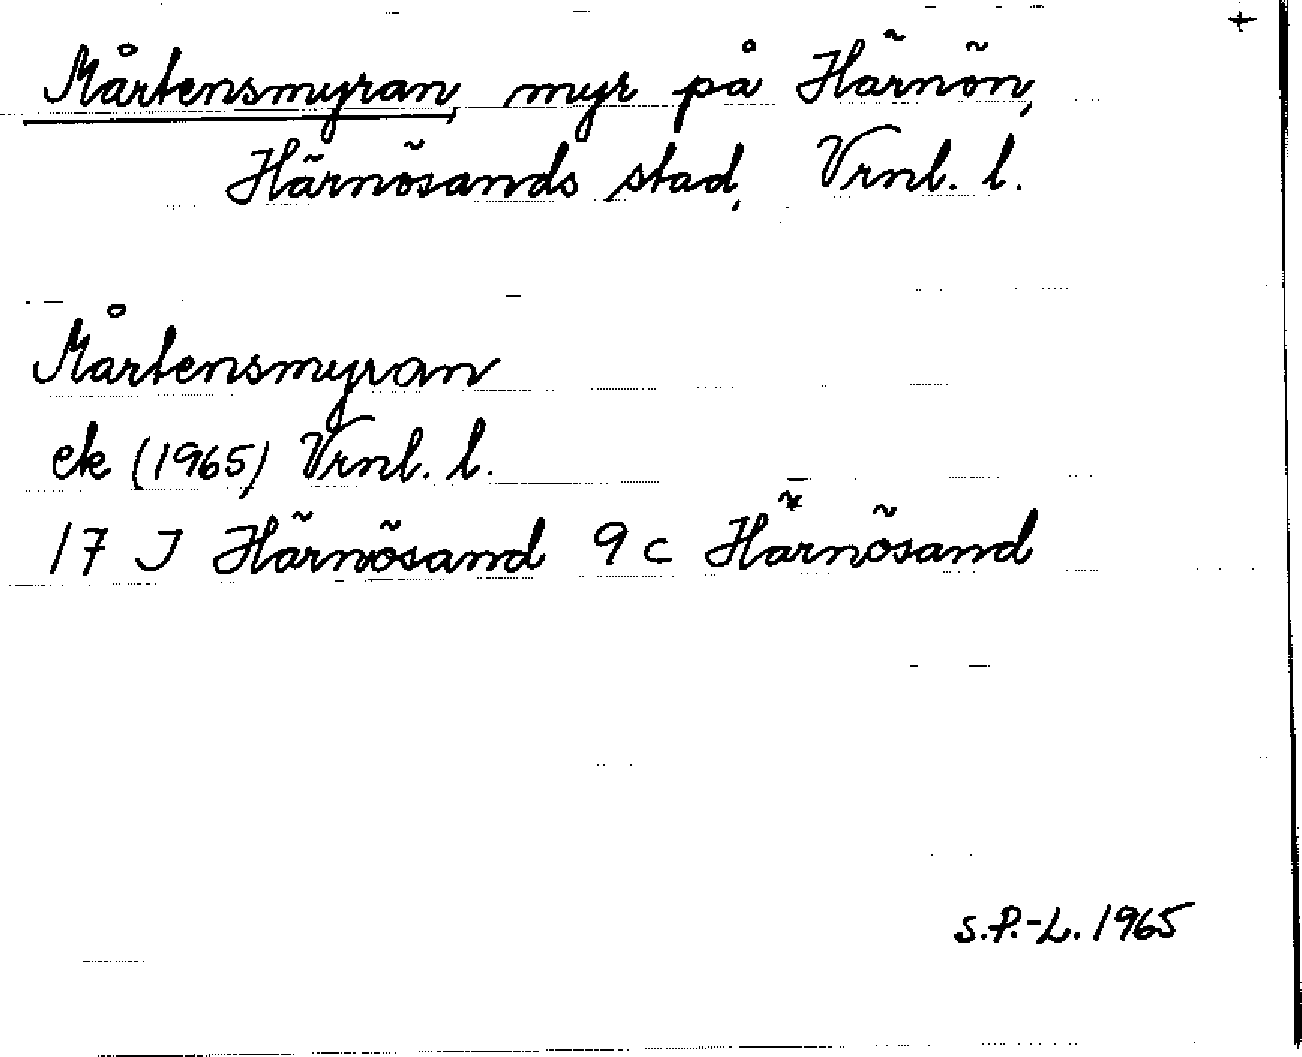 +
Mårtensmyran, myr på Härnön,
Härnösands stad, Vrnl. l.
Mårtensmyran
ek (1965) Vrnl. l.
17 J Härnösand 9 c Härnösand
S.P.-L. 1965